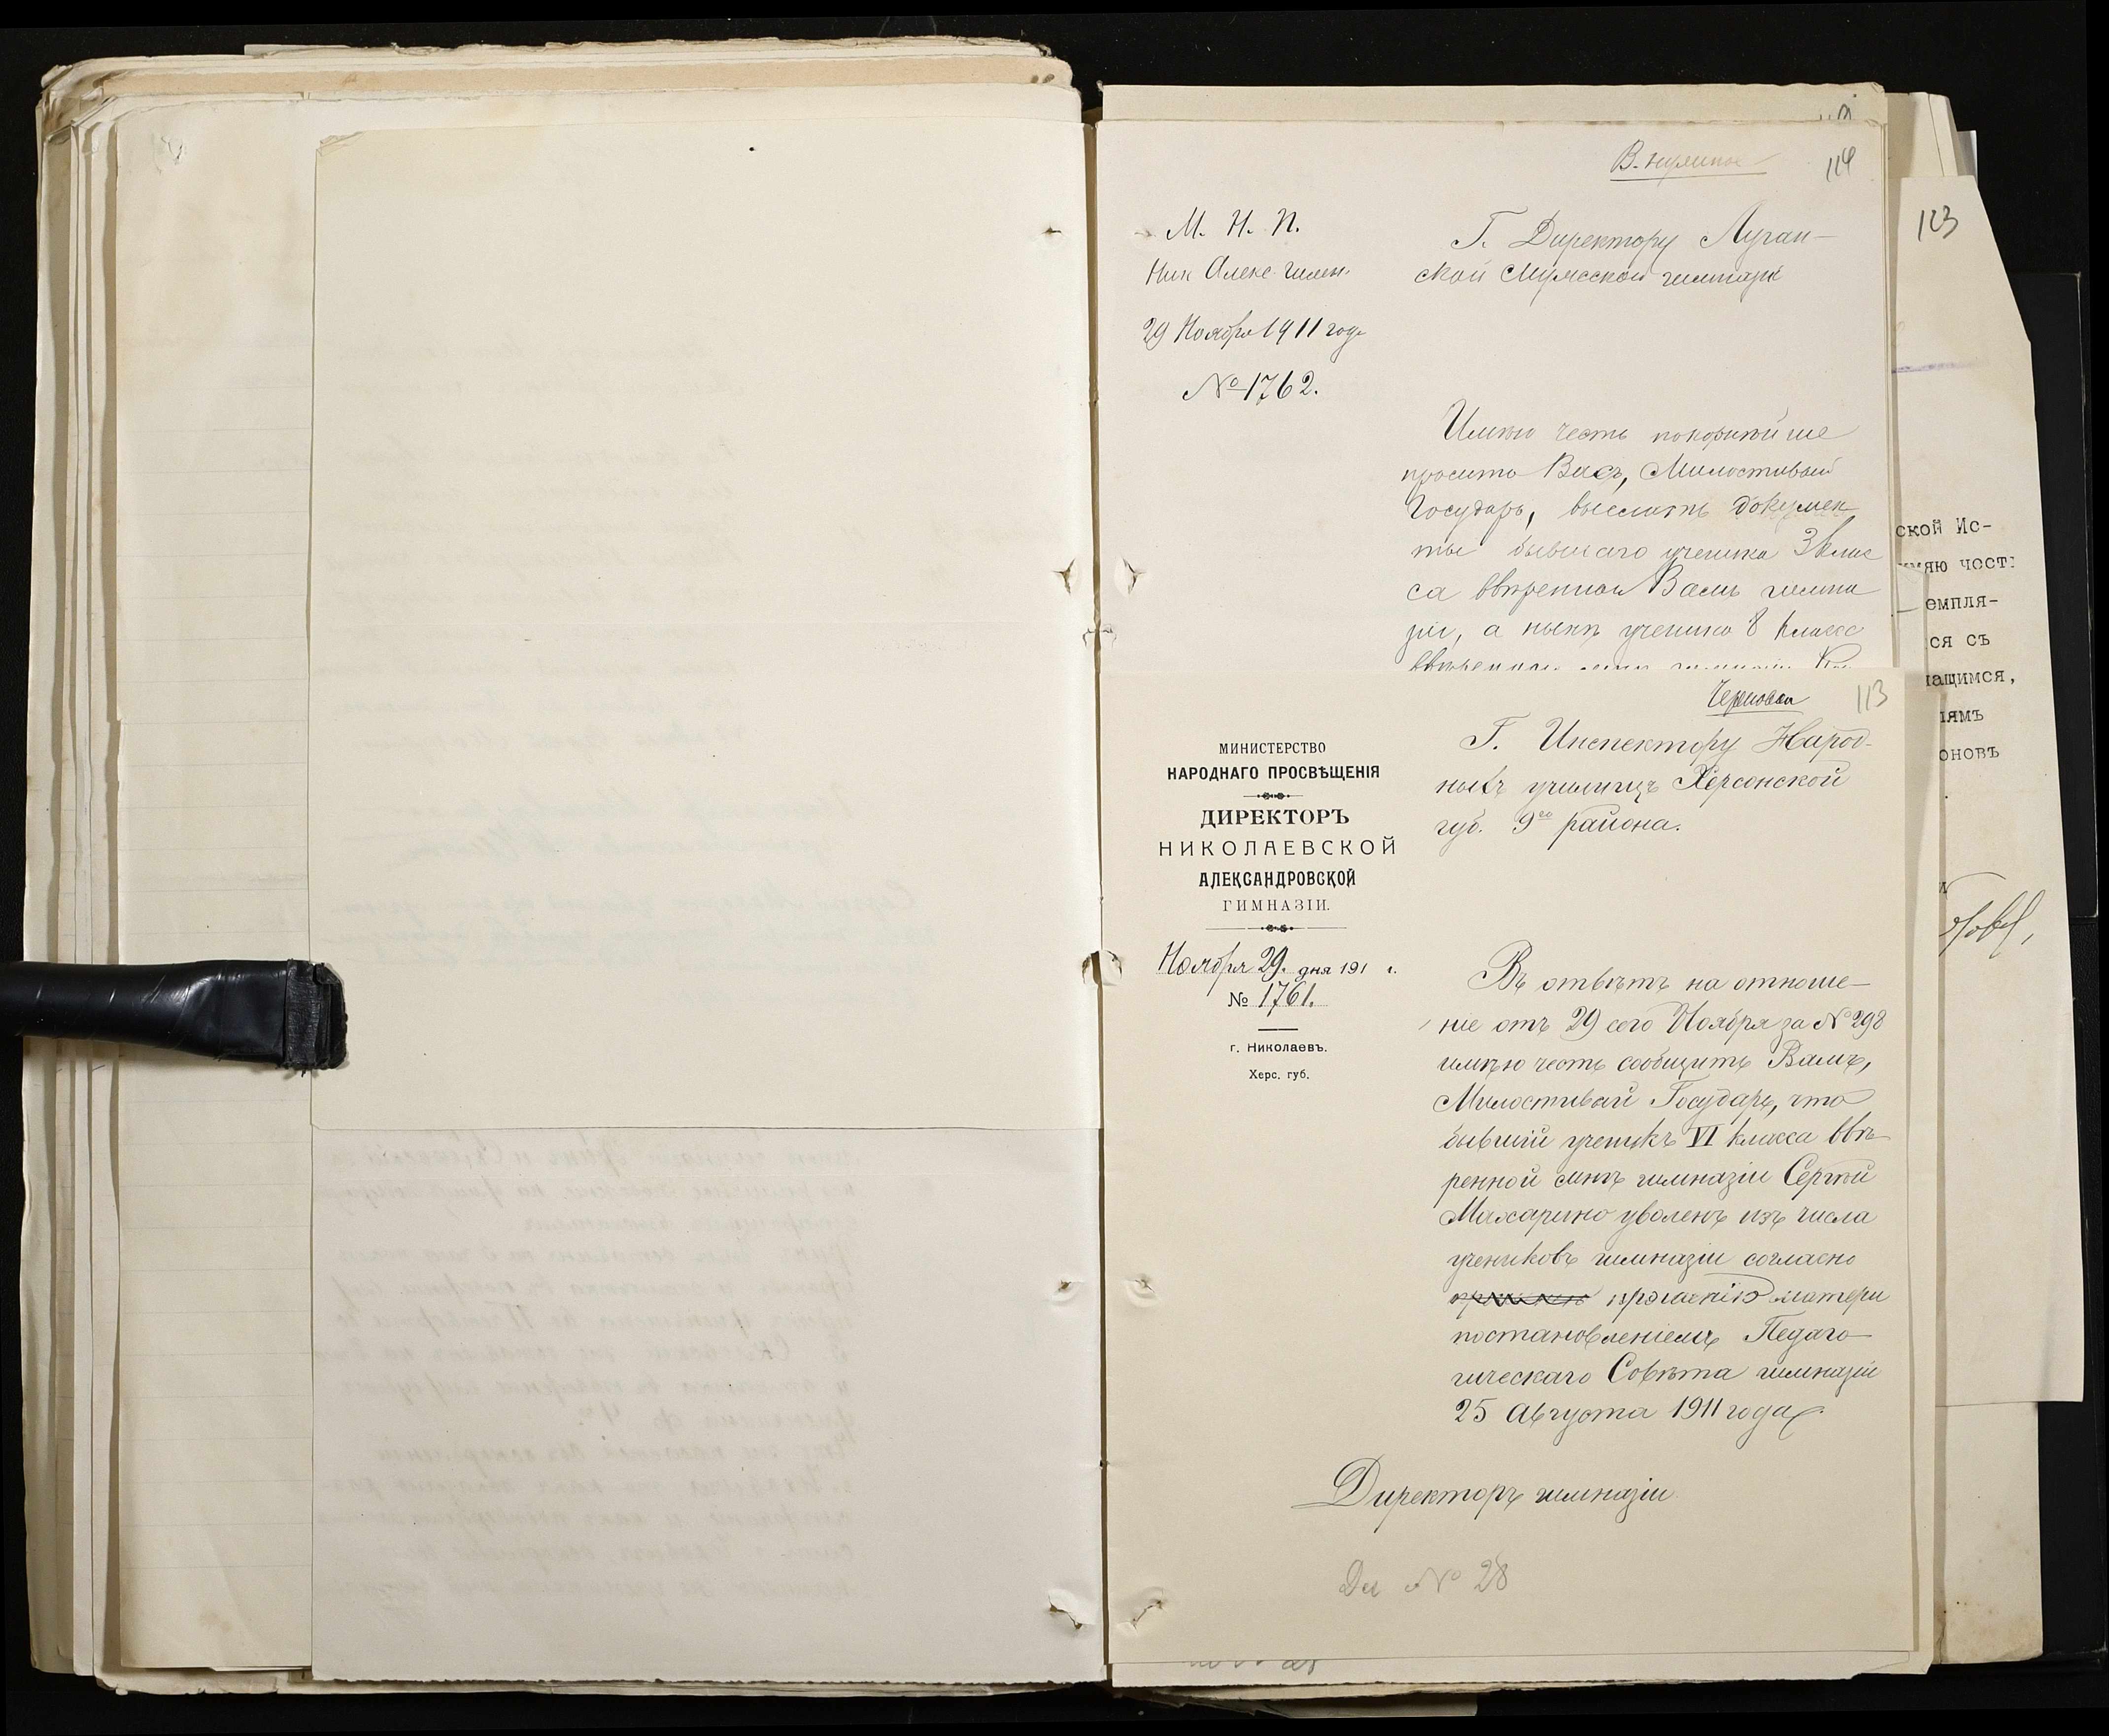 114
М. Н. П.
Ник Алекс. гимн.
29 Ноября 1911 года
№ 1762.
Г. Директору Луган-
ской Мужеской гимназіи
Имѣю честь покорнѣйше
просить Васъ, Милостивый
Государь, выслать докумен
ты бывшаго ученика 3 клас
са ввѣренной Вамъ гимна
зіи, а нынѣ ученика 8 класса
113
Черновая
МИНИСТЕРСТВО
НАРОДНАГО ПРОСВѢЩЕНІЯ
ДИРЕКТОРЪ
НИКОЛАЕВСКОЙ
АЛЕКСАНДРОВСКОЙ
ГИМНАЗІИ.
Ноября 29. дня 191 г.
№ 1761.
г. Николаевъ.
Херс. губ.
Г. Инспектору Народ-
ныхъ училищъ Херсонской
губ. 9го района.
Въ отвѣтъ на отноше-
ніе отъ 29 сего Ноября за № 298
имѣю честь сообщить Вамъ,
Милостивый Государь, что
бывшій ученикъ VI класса ввѣ-
ренной мнѣ гимназіи Сергѣй
Макарино уволенъ изъ числа
учениковъ гимназіи согласно
прошенію матери
постановленіемъ Педаго-
гическаго Совѣта гимназіи
25 Августа 1911 года.
Директоръ гимназіи
№ 28
123
ской Ис-
яю чест
емпля-
ся съ
ащимся,
ямъ
оновъ